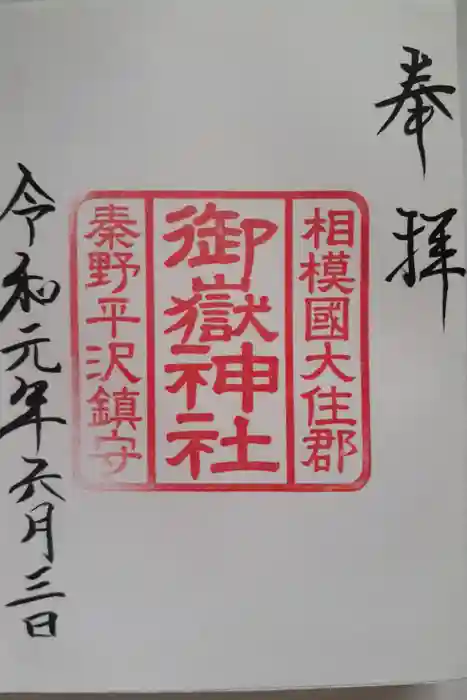 奉拝
相模國大住郡
御嶽神社
秦野平沢鎮守
令和元年六月三日